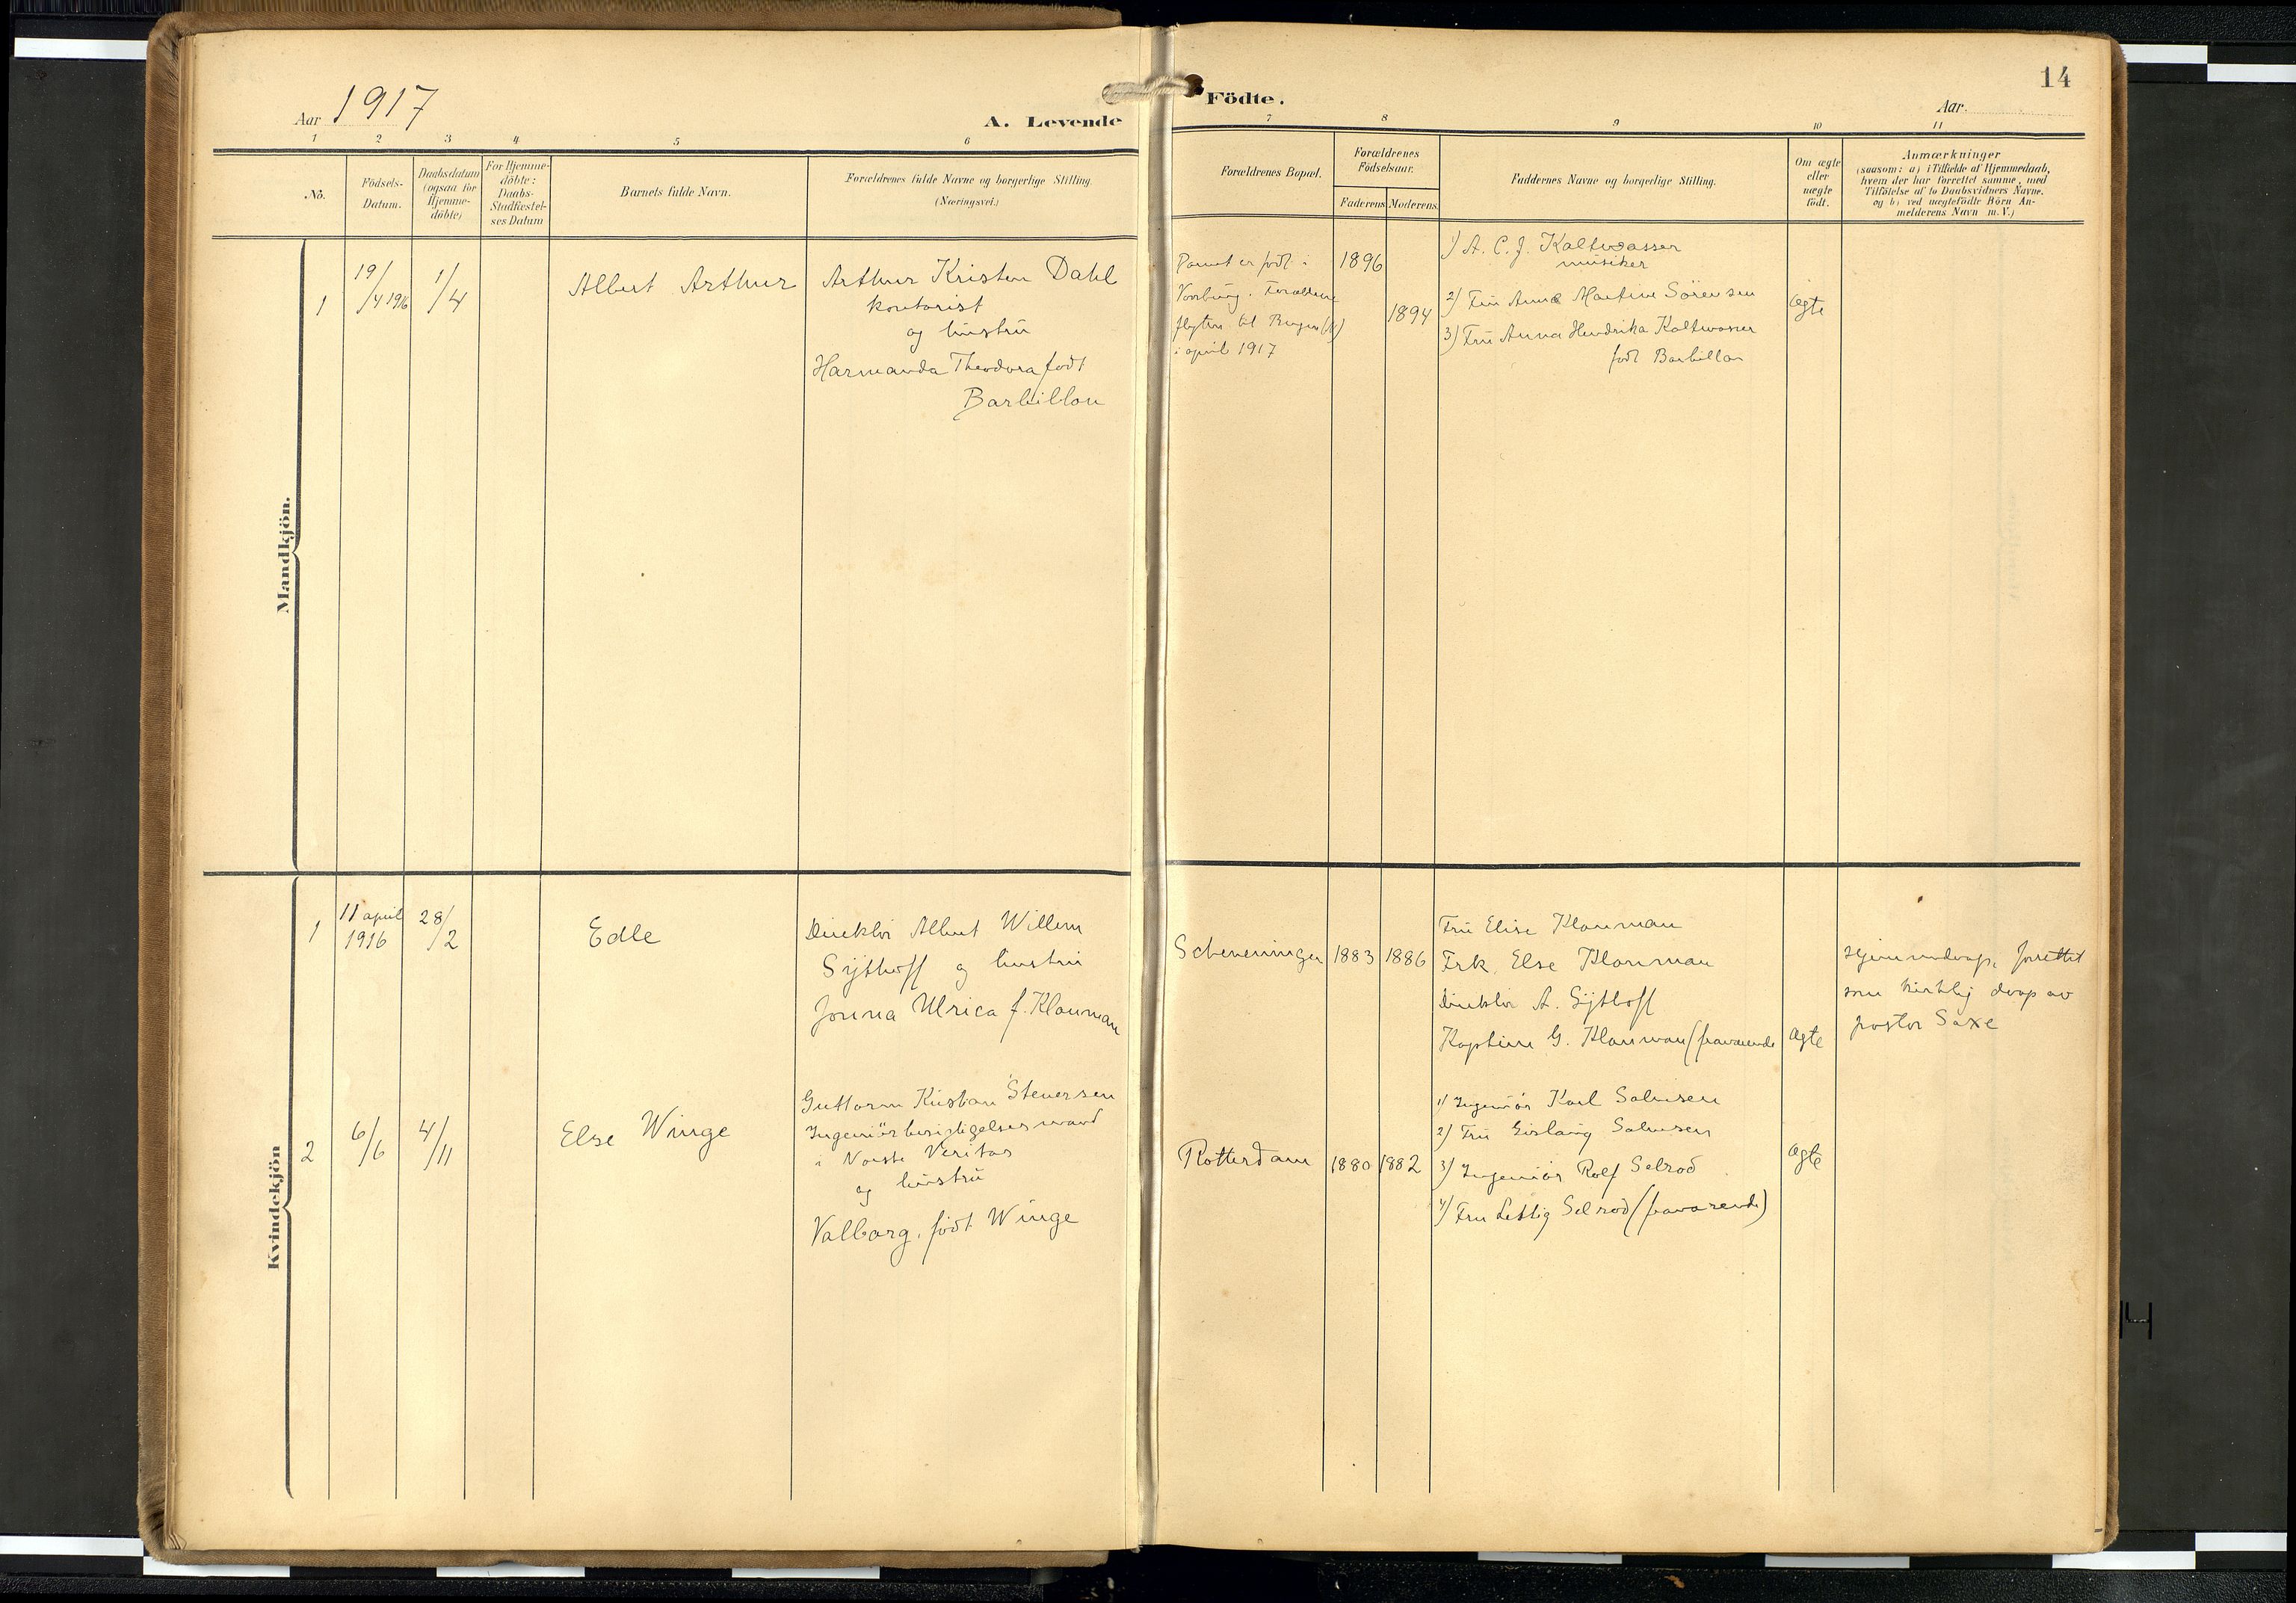 Aar 1917
A. Levende
Födte.
Aar
14
1 2 3 4 5 6 7 8 9 10 11
No.
Födsels-
Datum.
Daabsdatum
(ogsaa för
Hjemme-
döbte)
For Hjemme-
döbte:
Daabs-
Stadfæstel-
ses Datum
Barnets fulde Navn.
Forældrenes fulde Navne og borgerlige Stilling.
(Næringsvei.)
Forældrenes Bopæl.
Forældrenes
Födselsaar.
Faderens
Moderens
Faddernes Navne og borgerlige Stilling.
Om ægte
eller
uægte
födt.
Anmærkninger
(saasom: a) i Tilfælde af Hjemmedaab,
hvem der har forrettet samme, med
Tilföielse af to Daabsvidners Navne,
og b) ved uægtefödte Börn An-
melderens Navn m. V.)
Mandkjön.
1
19/4 1916
1/4
Albert Arthur
Arthur Kristen Dahl
kontorist
og hustru
Harmanda Theodora født
Barbillon
Barnet er født i
Voorburg. Forældrene
flyttet til Bergen (N)
i april 1917
1896
1894
1) A. C. J. Kaltwasser
musiker
2) Fru Anna Martine Sörensen
3) Fru Anna Hendrika Kaltwasser
født Barbillon
ægte
Kvindekjön
1
11 april
1916
28/2
Edle
Direktör Albert Willem
Sijthoff og hustru
Jonna Ulrica f. Klauman
Scheveningen
1883
1886
Fru Elise Klauman
Frk. Else Klauman
Direktör A. Sijthoff
Kaptein G. Klauman (fraværende
ægte
Hjemmedaap, forrettet
som kirkelig daap av
pastor Saxe
2
6/6
4/11
Else Winge
Guttorm Kristian Stenersen
Ingeniör besigtigelsesmand
i Norske Veritas
og hustru
Valborg, født Winge
Rotterdam
1880
1882
1) Ingeniör Karl Salvesen
2) Fru Gislaug Salvesen
3) Ingeniör Rolf Selrod
4) Fru Selrod (fraværende)
ægte
14